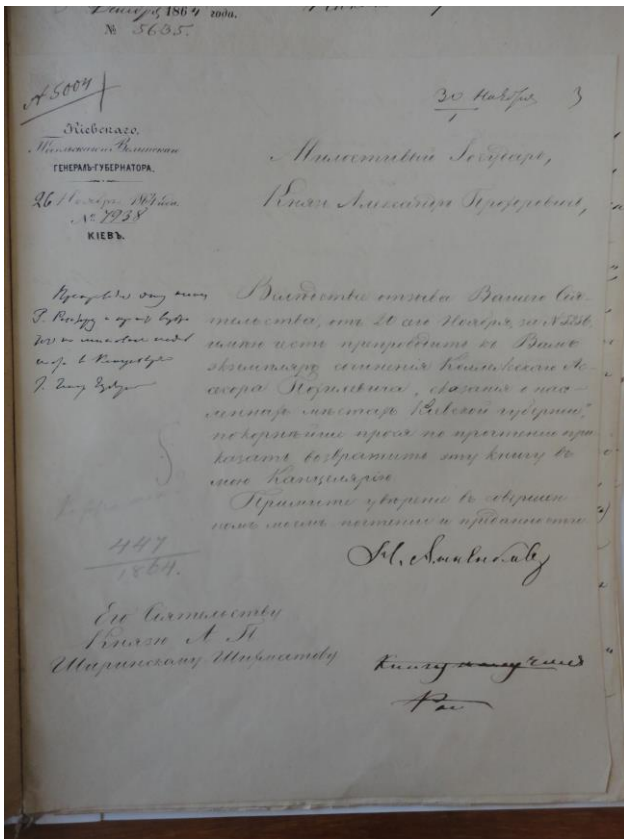 1864 года.
№ 5635.
№ 5004
30 Ноября 3
Кіевскаго,
Подольскаго и Волынскаго
ГЕНЕРАЛЪ-ГУБЕРНАТОРА.
26 Ноября 1864 года.
№ 7938
КІЕВЪ.
Милостивый Государь,
Князь Александръ Прохоровичъ,
Вслѣдствіе отзыва Вашего Сія-
тельства, отъ 20 сего Ноября, за №
имѣю честь препроводить къ Вамъ
экземпляръ сочиненія Коллежскаго Ас-
сесора Похилевича, „Сказанія о насе-
ленныхъ мѣстахъ Кіевской губерніи,"
покорнѣйше прося по прочтеніи при-
казать возвратить эту книгу въ
мою Канцелярію.
Примите увѣреніе въ совершен-
номъ моемъ почтеніи и преданности.
Н. Анненковъ
447
1864.
Его Сіятельству
Князю А. П.
Ширинскому Шихматову
Книгу получилъ